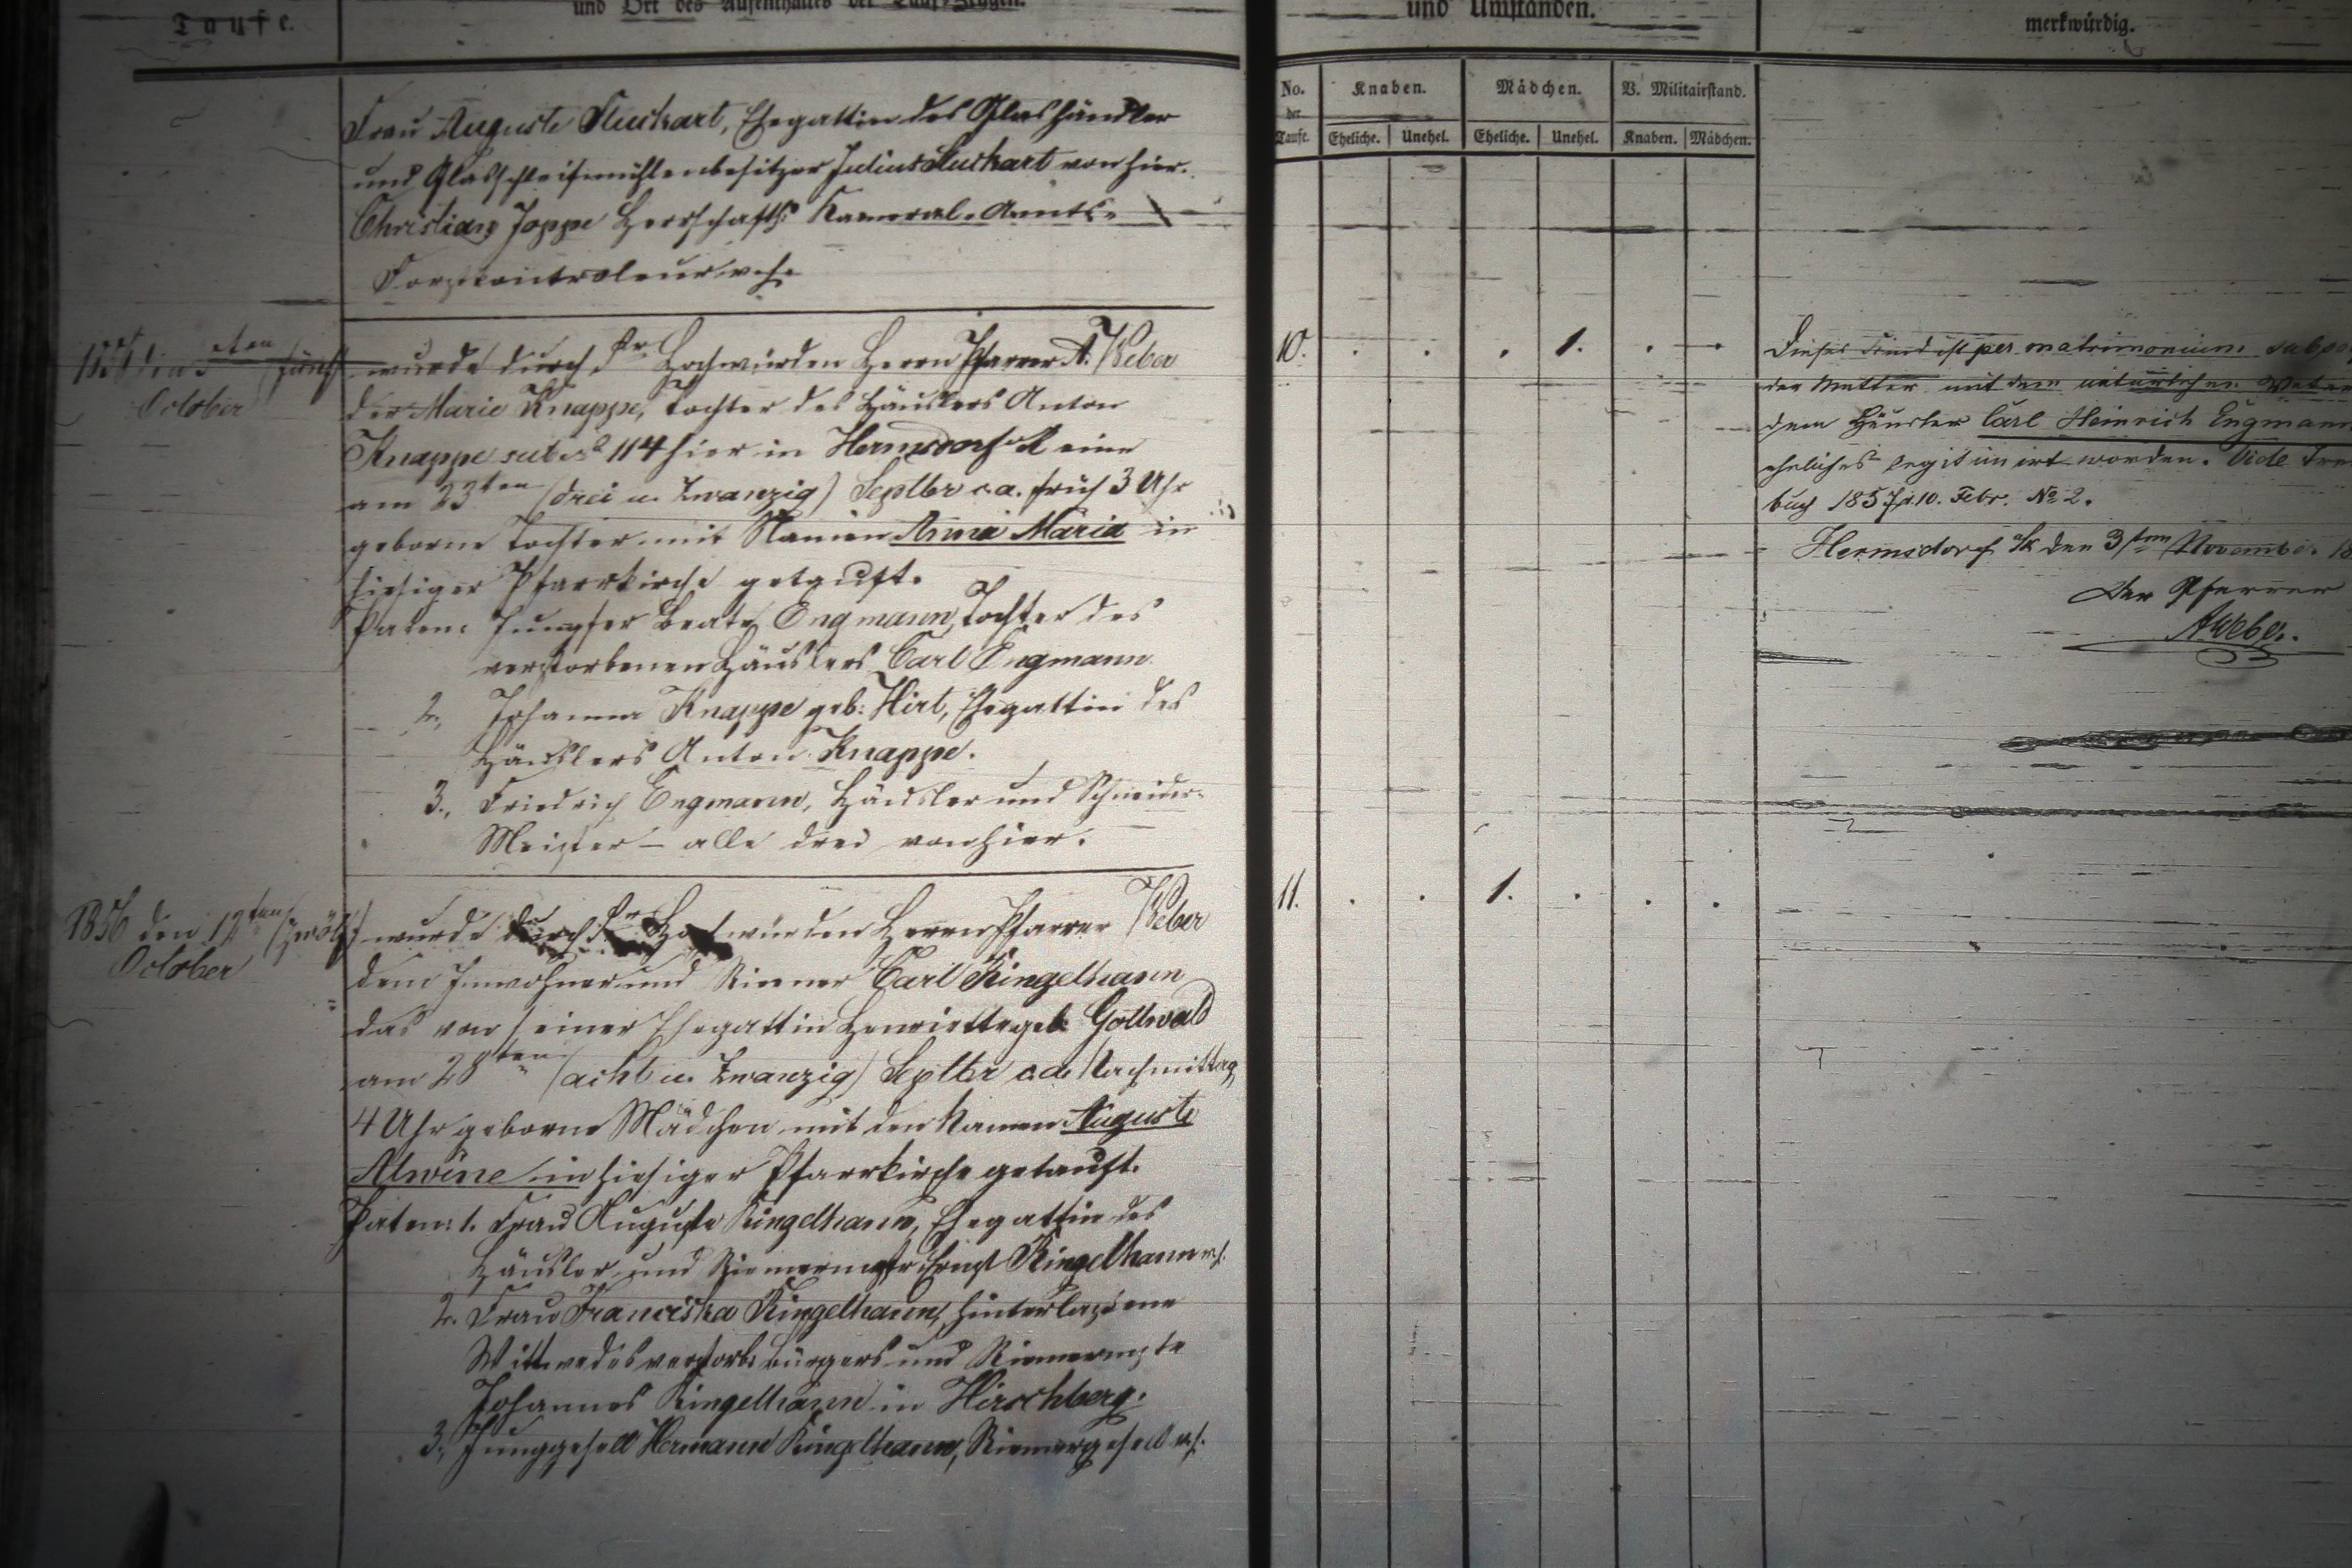 Taufe.
und Ort des Aufenthaltes der Tauf-Zeugen.
und Umständen.
merkwürdig.
No. der Taufe.
Knaben.
Mädchen.
V. Militairstand.
Eheliche. Unehel. Eheliche. Unehel. Knaben. Mädchen.
Frau Auguste Kuckart, Ehegattin des Glashändler
und Glasschleifmühlenbesitzer Julius Kuckart von hier.
Christian Joppe Herrschaftl. Kameral-Amts-
Forstcontroleur v. h.
October
wurde durch Sr. Hochwürden Herrn Pfarrer A. Weber
der Marie Knappe, Tochter des Häuslers Anton
Knappe sub No 114 hier in Hermsdorf eine
am 23ten (drei u. Zwanzig) Septbr c. a. früh 3 Uhr
geborne Tochter mit Namen Anna Maria in
hiesiger Pfarrkirche getauft.
Paten: Jungfer Beate Engmann, Tochter des
verstorbenen Häuslers Carl Engmann
2., Johanna Knappe geb: Hirt, Ehegattin des
Häuslers Anton Knappe.
3., Friedrich Engmann, Häusler und Schneider-
Meister – alle drei von hier.
10. . . . 1. . .
Dieses Kind ist per matrimonium
der Mutter mit dem natürlichen Vater
dem Häusler Carl Heinrich Engmann
eheliches legitimirt worden. Vide
buch 1857 d. 10. Febr. No 2.
Hermsdorf a/K den 3ten November
Der Pfarrer
A Weber.
1856 den 12ten (zwölf)
October
wurde durch Sr. Hochwürden Herrn Pfarrer Weber
dem Inwohner und Riemer Carl Ringelhann
das von seiner Ehegattin Henriette geb. Gottwald
am 28ten (acht u. Zwanzig) Septbr c. a. Nachmittag
4 Uhr geborne Mädchen mit den Namen Auguste
Alwine in hiesiger Pfarrkirche getauft.
Paten: 1. Frau Auguste Ringelhann, Ehegattin des
Häusler und Riemermstr Ernst Ringelhann v. h.
2. Frau Franciska Ringelhann, hinterlassene
Wittwe des verstorb. Bürgers und Riemermstr
Johannes Ringelhann in Hirschberg.
3., Junggesell Hermann Ringelhann, Riemergesell v. h.
11. . . 1. . . .